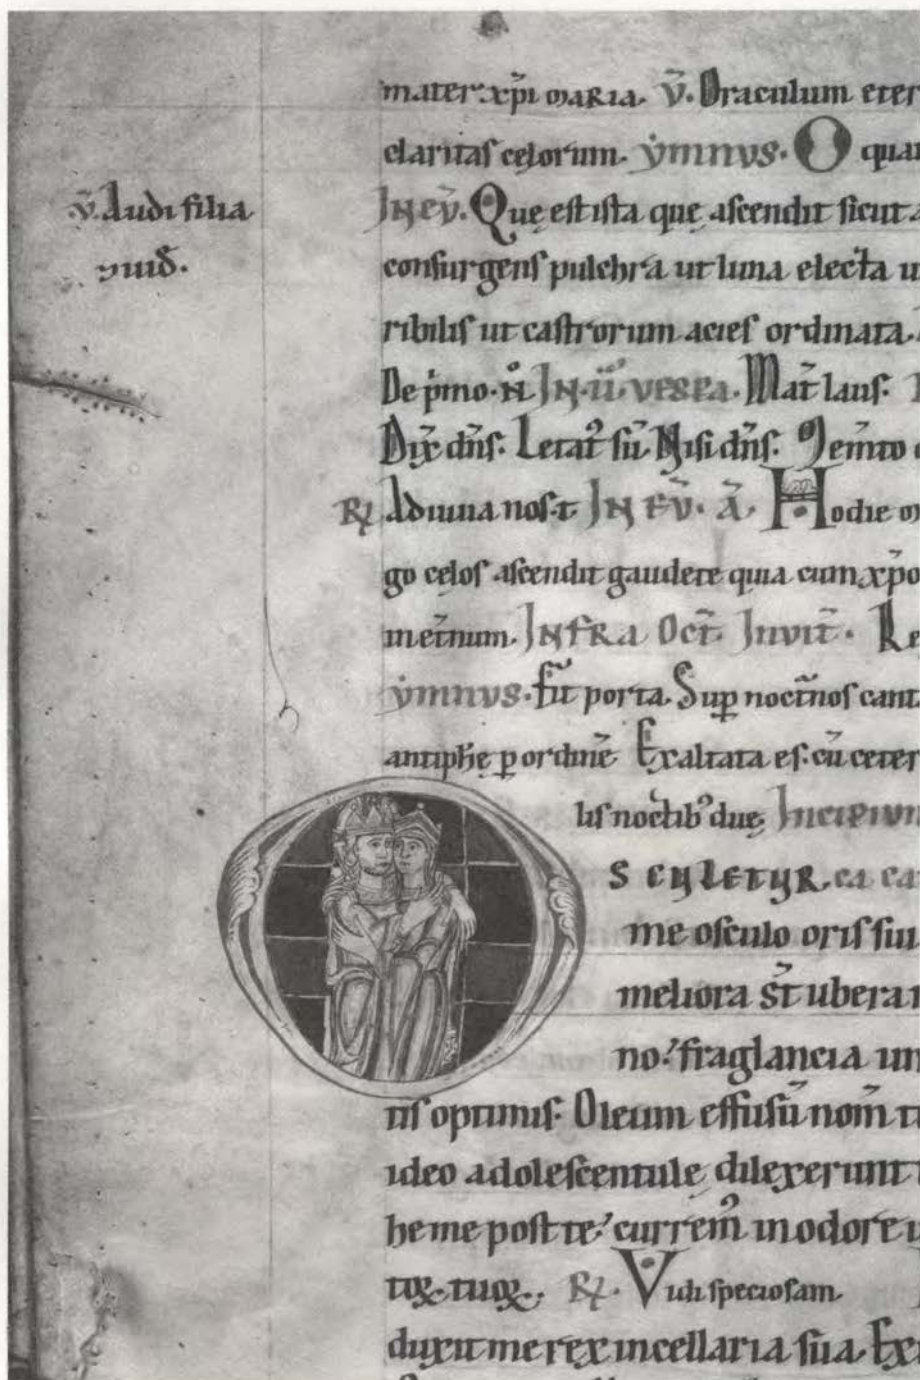 mater xp̄i maria. v̄. Oraculum eter
claritas celorum. ẏmnvs. O quam
v̄. Audi filia
⁊ uid̄.
In ev̄. Quę est ista quę ascendit sicut a
consurgens pulchra ut luna electa u
ribilis ut castrorum acies ordinata.
De p̄mo. N̊ In. ii. vespa. Mat̄ laus.
Dix̄ dn̄s. Letat᷒ sū. Nisi dn̄s.
R̷ Adiuua nos. ⁊ In ev̄. ā. Hodie m
go celos ascendit gaudete quia cum xp̄o
in et̄num. Infra Oct̄. Invit̄. Re
ẏmnvs. fit̄ porta. Sup noct̄nos cant
antiphę ꝑ ordinē Exaltata es. cū ceter
lis noctib᷒ duę Incipivn
OSCULETUR. ca ca
me osculo oris sui
meliora st̄ ubera
no. fraglancia un
tis optimis. Oleum effusū nom̄ t
ideo adolescentulę dilexerunt
he me post te. currem᷒ in odore u
toꝝ tuoꝝ. R̷. Vidi speciosam
duxit me rex in cellaria sua. Ex